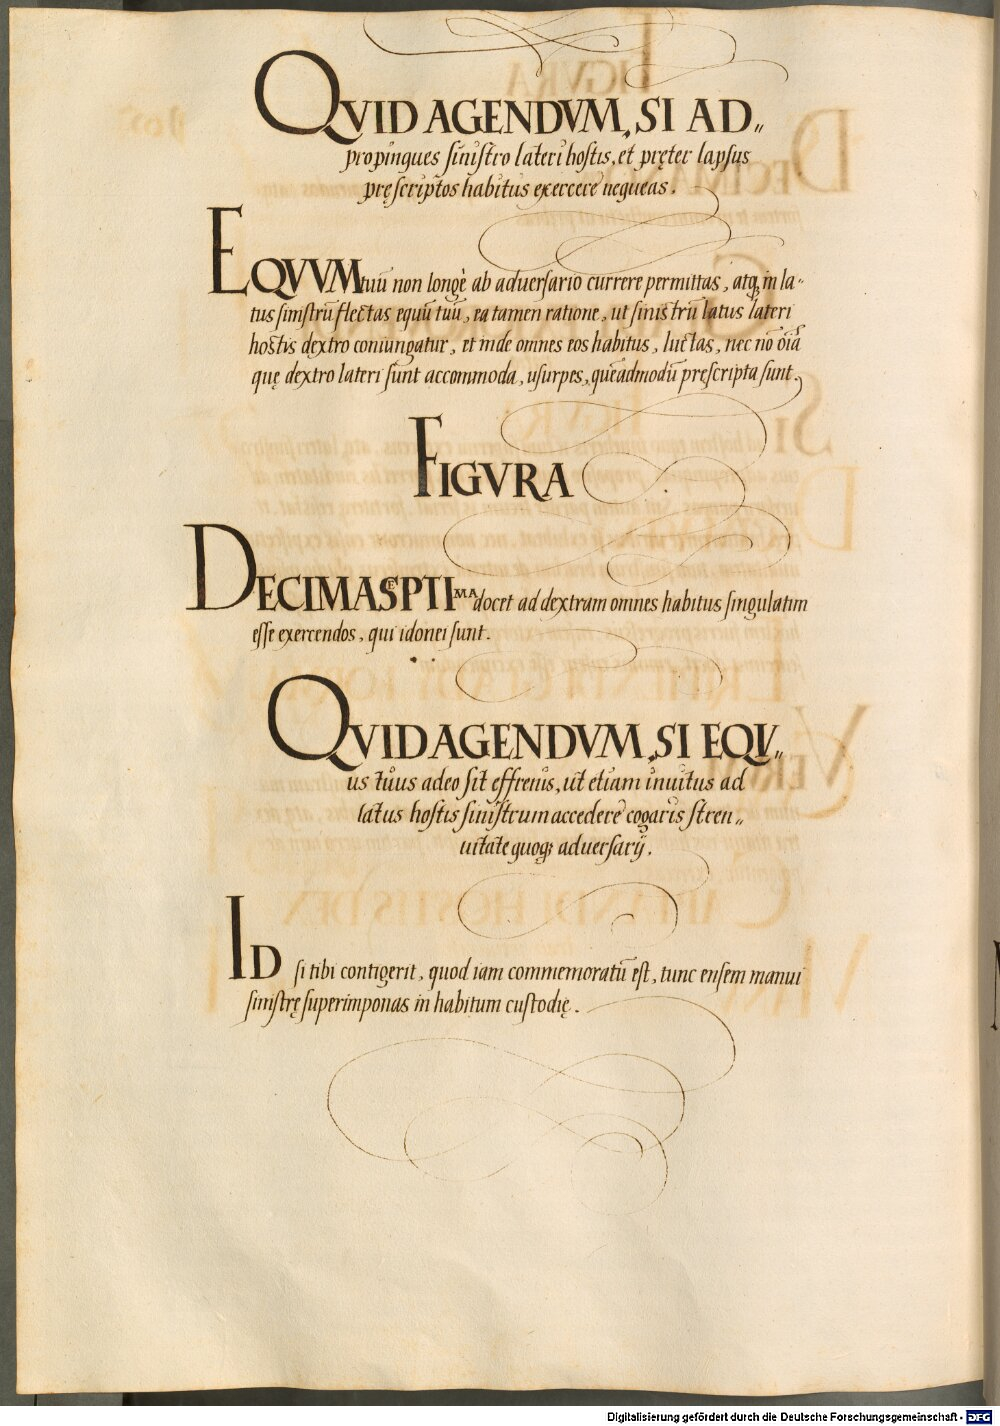 QVID AGENDVM, SI AD„
propinques sinistro lateri hostis, et pręter lapsus
pręscriptos habitus exercere nequeas.
EQVVM tuū non longè ab adversario currere permittas, atq; in la-
tus sinistrū flectas equū tuū, ea tamen ratione, ut sinistrū latus lateri
hostis dextro coniungatur, et inde omnes eos habitus, luctas, nec nō oīā
quę dextro lateri sunt accommoda, usurpes, quēadmodū pręscripta sunt.
FIGVRA
DECIMASEPTIMA docet ad dextram omnes habitus singulatim
esse exercendos, qui idonei sunt.
QVID AGENDVM, SI EQV„
us tuus adeo sit effrenis, ut etiam invitus ad
latus hostis sinistrum accedere cogaris stren„
uitate quoq; adversarij.
ID si tibi contigerit, quod iam commemoratū est, tunc ensem manui
sinistrę superimponas in habitum custodię.
Digitalisierung gefördert durch die Deutsche Forschungsgemeinschaft - DFG